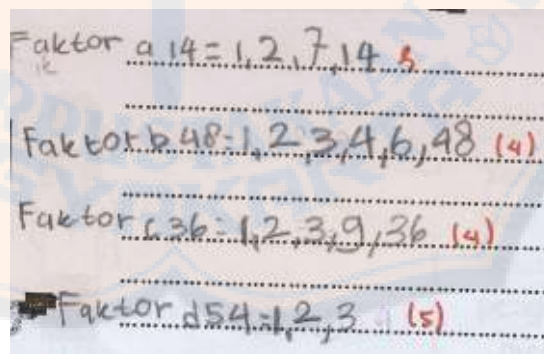 Faktor a 14 = 1, 2, 7, 14 5
Faktor b 48 = 1, 2, 3, 4, 6, 48 (4)
Faktor c 36 = 1, 2, 3, 9, 36 (4)
Faktor d 54 = 1, 2, 3 (5)